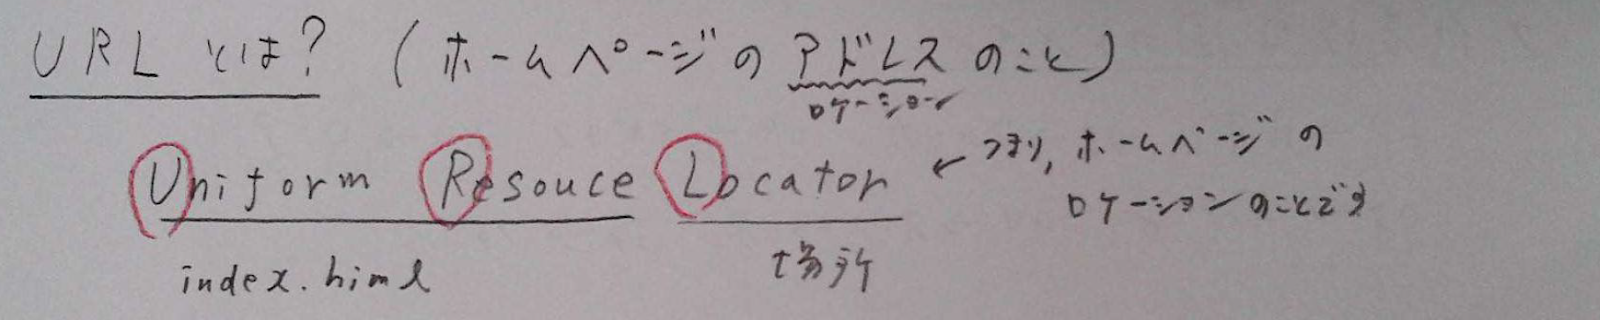 URL とは? (ホームページのアドレスのこと)
ロケーション
Uniform Resouce Locator ← つまり, ホームページの
ロケーションのことです
index.himl
場所